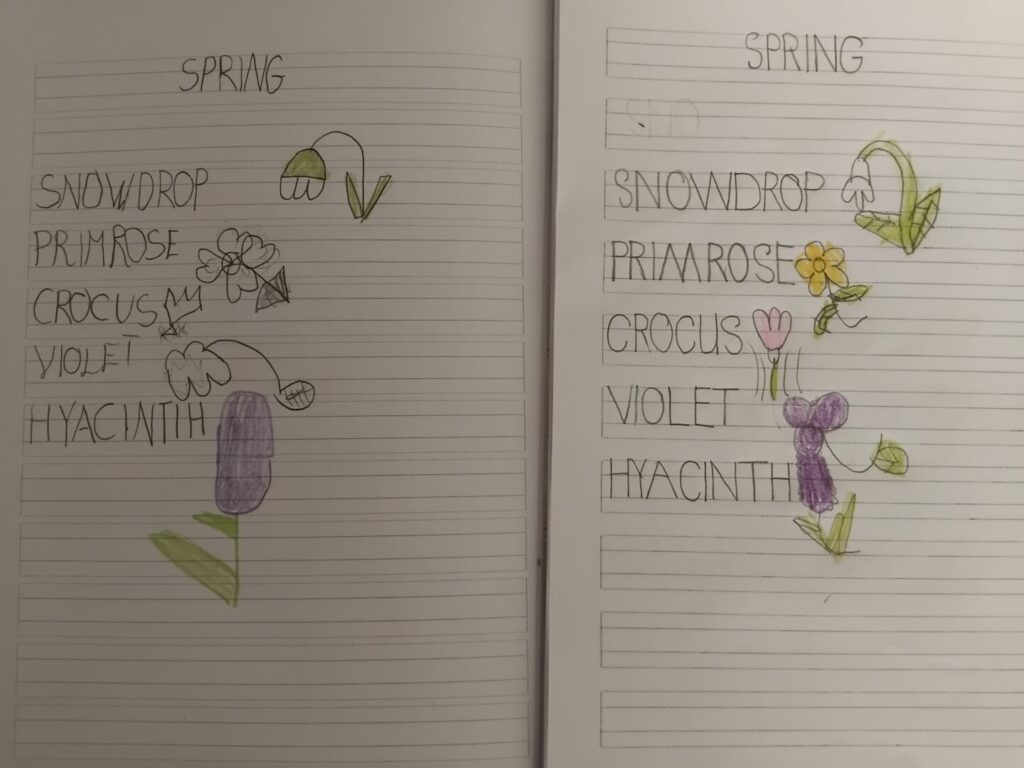 SPRING
SNOWDROP
PRIMROSE
CROCUS
VIOLET
HYACINTH
SPRING
SNO
SNOWDROP
PRIMROSE
CROCUS
VIOLET
HYACINTH